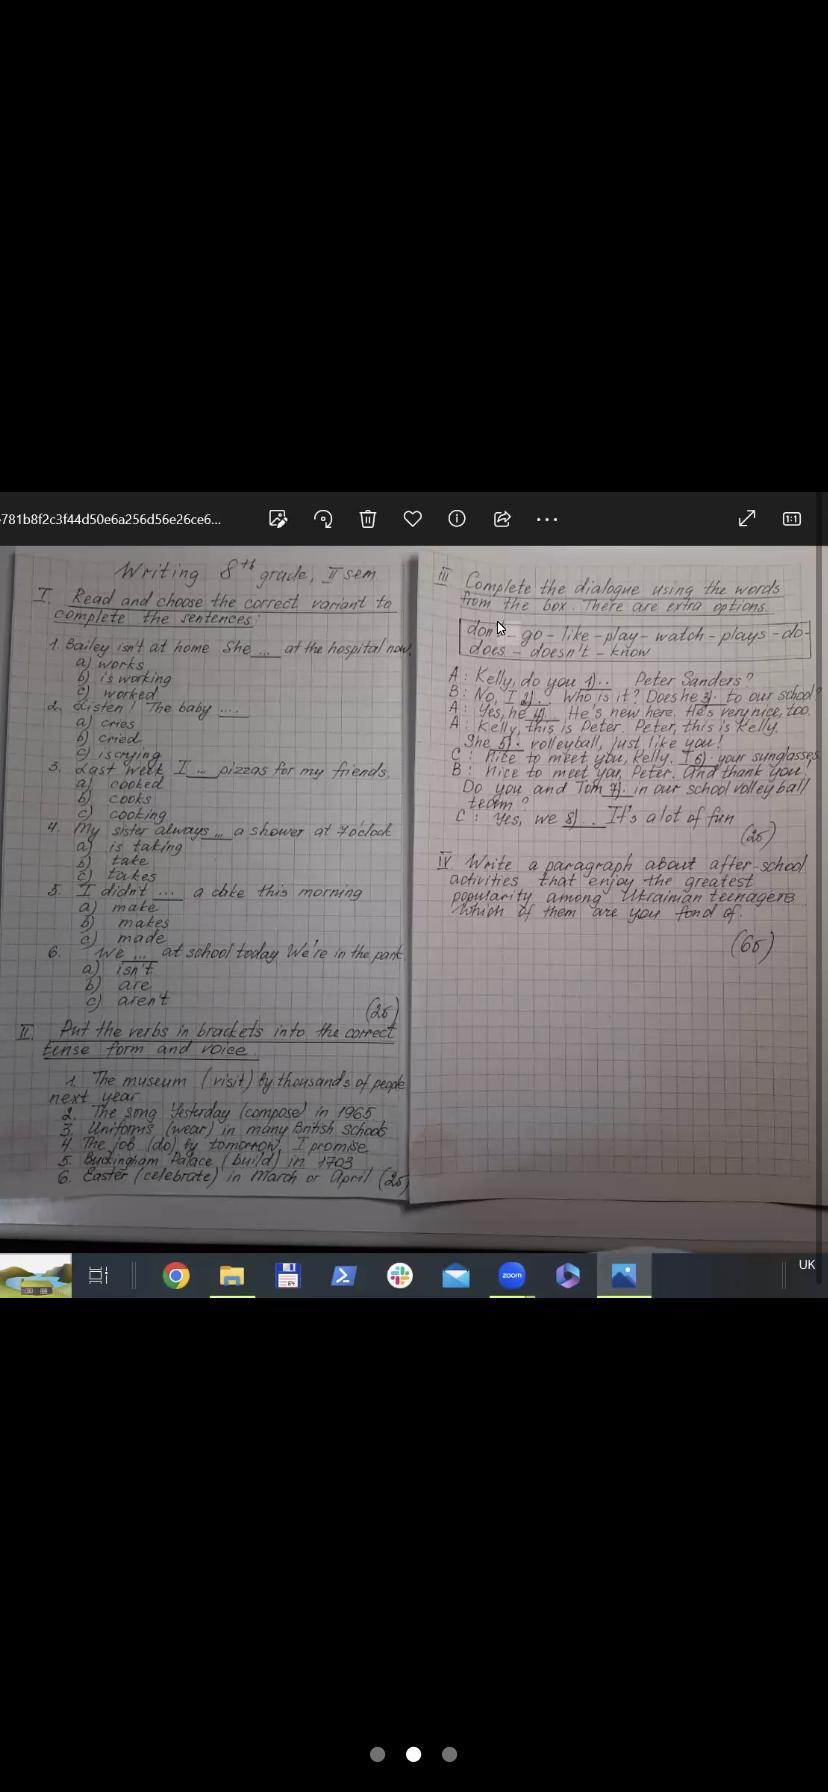 781b8f2c3f44d50e6a256d56e26ce6...
Writing 8th grade, II sem
I. Read and choose the correct variant to
complete the sentences:
1. Bailey isn't at home She ... at the hospital now.
a) works
b) is working
c) worked
2. Listen! The baby ....
a) cries
b) cried
c) is crying
3. Last week I ... pizzas for my friends.
a) cooked
b) cooks
c) cooking
4. My sister always ... a shower at 7 o'clock
a) is taking
b) take
c) takes
5. I didn't ... a cake this morning
a) make
b) makes
c) made
6. We ... at school today. We're in the park.
a) isn't
b) are
c) aren't
(2б)
II. Put the verbs in brackets into the correct
tense form and voice.
1. The museum (visit) by thousands of people
next year
2. The song Yesterday (compose) in 1965
3. Uniforms (wear) in many British schools
4. The job (do) by tomorrow, I promise
5. Buckingham Palace (build) in 1703
6. Easter (celebrate) in March or April (2б)
III Complete the dialogue using the words
from the box. There are extra options.
don - go - like - play - watch - plays - do -
does - doesn't - know
A: Kelly, do you 1).. Peter Sanders?
B: No, I 2). . Who is it? Does he 3). to our school?
A: Yes, he 4). . He's new here. He's very nice, too.
A: Kelly, this is Peter. Peter, this is Kelly.
She 5). volleyball, just like you!
C: Nite to meet you, Kelly. I 6). your sunglasses.
B: Nice to meet you, Peter. And thank you!
Do you and Tom 7). in our school volleyball
team?
C: Yes, we 8). . It's a lot of fun
(2б)
IV Write a paragraph about after-school
activities that enjoy the greatest
popularity among Ukrainian teenagers
Which of them are you fond of.
(6б)
1:1
64
zoom
UK